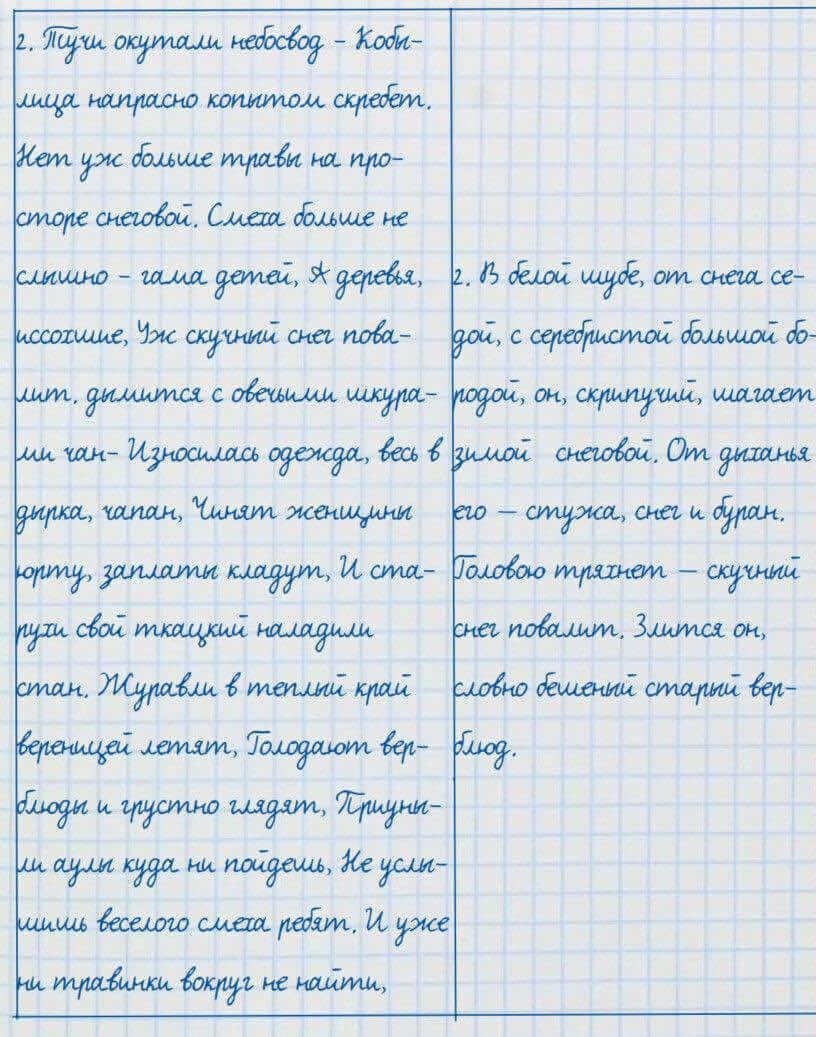 2. Тучи окутали небосвод - Кобы-
лица напрасно копытом скребет.
Нет уж больше травы на про-
сторе снеговой. Смеха больше не
слышно - гама детей, А деревья,
иссохшие, Уж скучный снег пова-
лит. дымится с овечьими шкура-
ми чан- Износилась одежда, весь в
дырка, чапан, Чинят женщины
юрту, заплаты кладут, И ста-
рухи свой ткацкий наладили
стан. Журавли в теплый край
вереницей летят, Голодают вер-
блюды и грустно глядят, Приуны-
ли аулы куда ни пойдешь, Не услы-
шишь веселого смеха ребят. И уже
ни травинки вокруг не найти,
2. В белой шубе, от снега се-
дой, с серебристой большой бо-
родой, он, скрипучий, шагает
зимой снеговой. От дыханья
его — стужа, снег и буран.
Головою тряхнет — скучный
снег повалит. Злится он,
словно бешеный старый вер-
блюд.